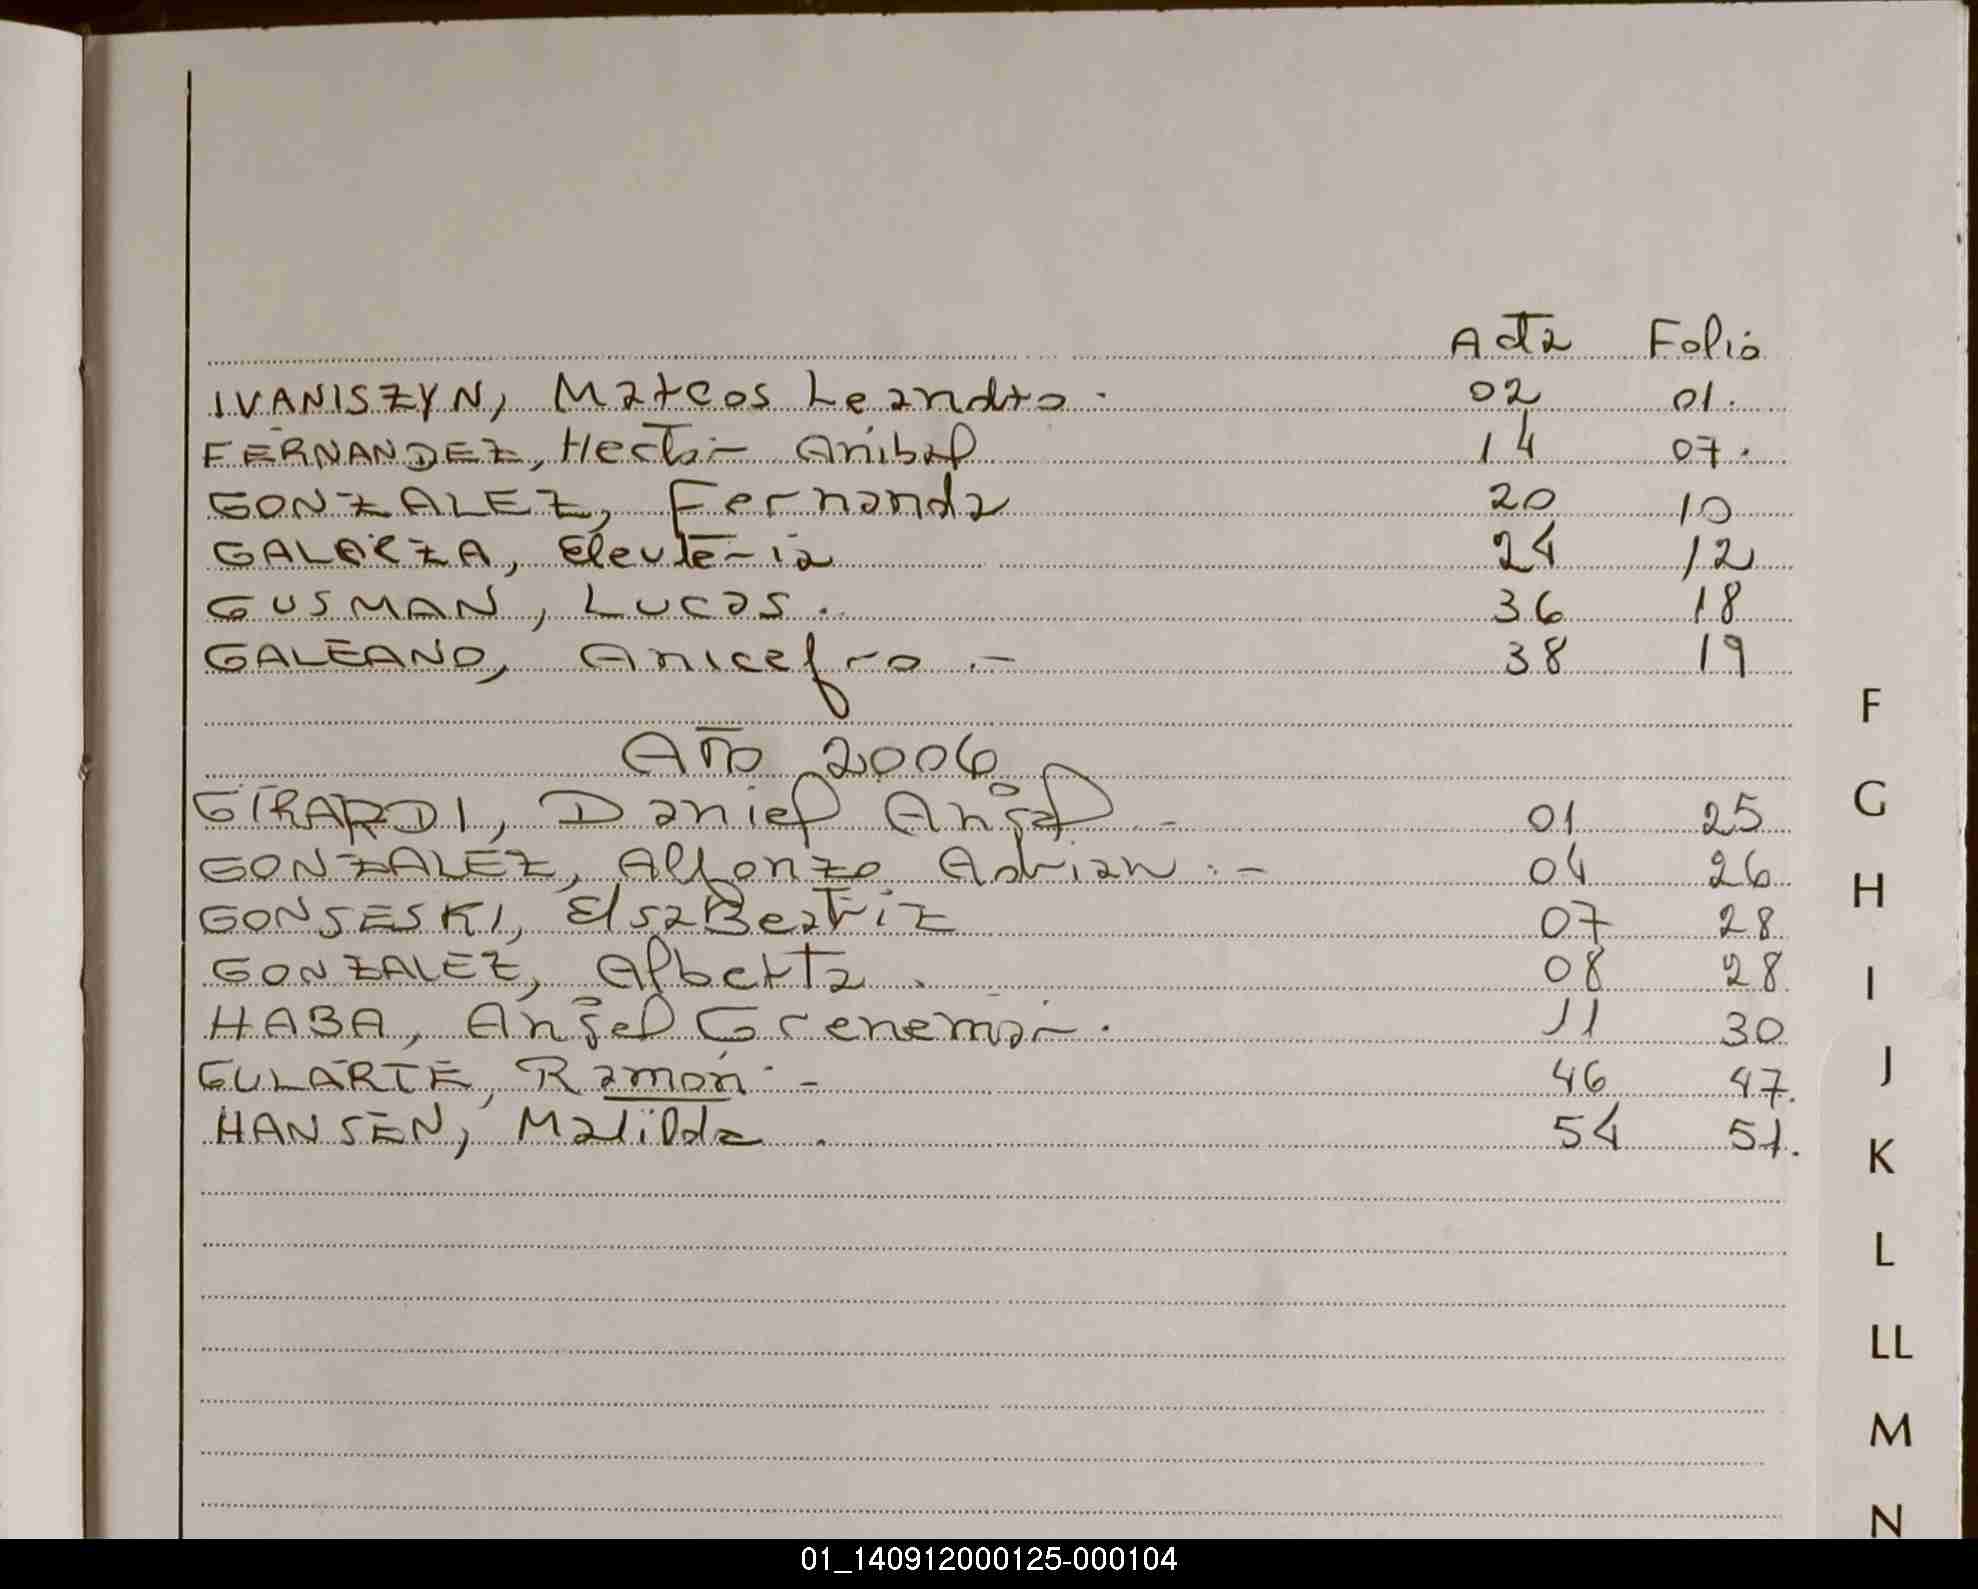 Acta Folio
IVANISZYN, Marcos Leandro. 02 01.
FERNANDEZ, Hector Anibal 14 07.
GONZALEZ, Fernanda 20 10
GALARZA, Eleuteria 24 12
GUSMAN, Lucas. 36 18
GALEANO, Anicefro .- 38 19
Año 2006
GIRARDI, Daniel Angel - 01 25
GONZALEZ, Alfonzo Adrian .- 04 26
GONSESKI, Elsa Beatriz 07 28
GONZALEZ, Alberta. 08 28
HABA, Angel Grenemar. 11 30
GULARTE, Ramón - 46 47.
HANSEN, Matilda. 54 51.
F
G
H
I
J
K
L
LL
M
N
01_140912000125-000104